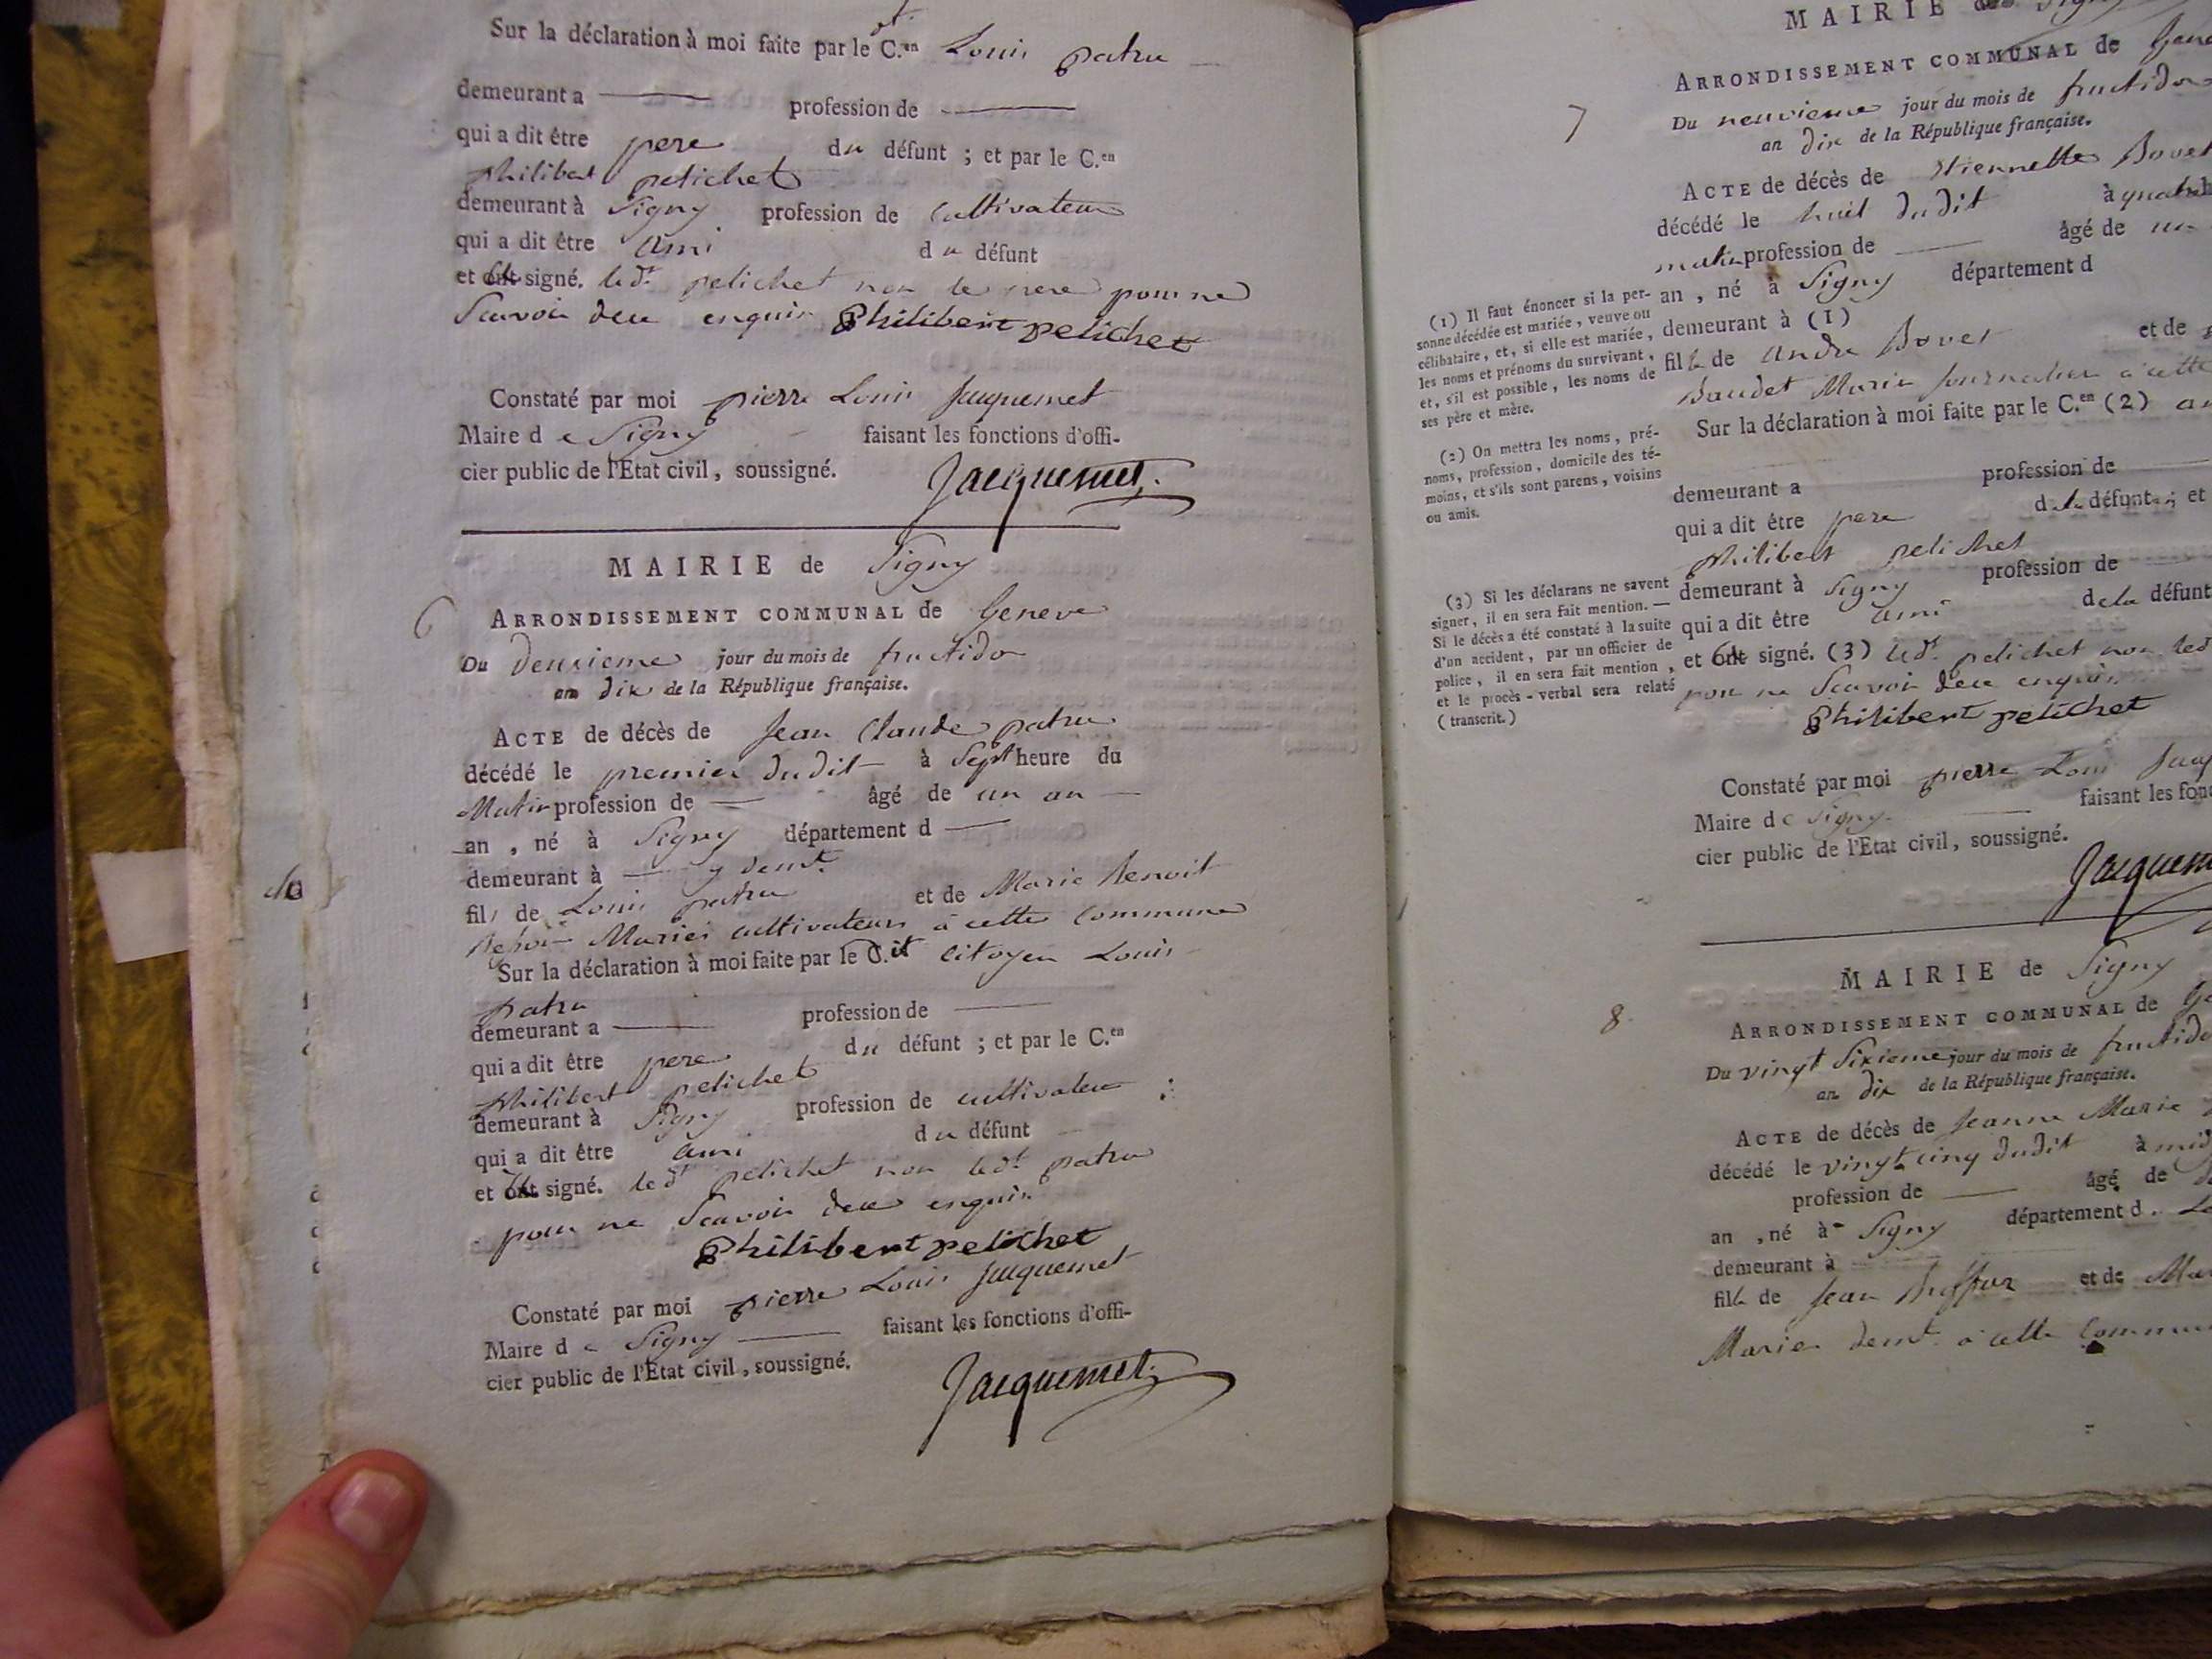 Sur la déclaration à moi faite par le C.en Louis patru
demeurant a profession de
qui a dit être pere du défunt ; et par le C.en
philibert pelichet
demeurant à Signy profession de Cultivateur
qui a dit être ami du défunt
et ont signé. led.t pelichet non le pere pour ne
Scavoir de ce enquis Philibert pelichet
Constaté par moi pierre Louis Jacquemet
Maire de Signy faisant les fonctions d'offi-
cier public de l'Etat civil, soussigné.
Jacquemet
MAIRIE de Signy
6
ARRONDISSEMENT COMMUNAL de Geneve
Du deuxieme jour du mois de fructidor
an dix de la République française.
ACTE de décès de Jean Claude patru
décédé le premier dudit à Sept heure du
Matin profession de âgé de un an
an , né à Signy département d
demeurant à y demt.
fils de Louis patru et de Marie Benoit
Mariés cultivateurs à cette Commune
Sur la déclaration à moi faite par le C.it Citoyen Louis
patru
demeurant a profession de
qui a dit être pere du défunt ; et par le C.en
philibert pelichet
demeurant à Signy profession de cultivateur
qui a dit être ami du défunt
et ont signé. led.t pelichet non led.t patru
pour ne Scavoir de ce enquis
Philibert pelichet
Constaté par moi pierre Louis Jacquemet
Maire de Signy faisant les fonctions d'offi-
cier public de l'Etat civil, soussigné.
Jacquemet
MAIRIE de Signy
ARRONDISSEMENT COMMUNAL de
7
Du neuvieme jour du mois de fructidor
an dix de la République française.
ACTE de décès de Etiennette Bovet
décédé le huit dudit à
matin profession de âgé de un
an , né à Signy département d
demeurant à (1)
fille de André Bovet et de
Baudet Mariés Journaliers à cette
Sur la déclaration à moi faite par le C.en (2)
demeurant a profession de
qui a dit être pere de la défunte ; et
philibert pelichet
demeurant à Signy profession de
qui a dit être ami de la défunt
et ont signé. (3) led.t pelichet non led
pour ne Scavoir de ce enquis
Philibert pelichet
Constaté par moi pierre Louis
Maire de Signy faisant les fonc
cier public de l'Etat civil, soussigné.
Jacquem
(1) Il faut énoncer si la per-
sonne décédée est mariée, veuve ou
célibataire, et, si elle est mariée,
les noms et prénoms du survivant,
et, s'il est possible, les noms de
ses père et mère.
(2) On mettra les noms, pré-
noms, profession, domicile des té-
moins, et s'ils sont parens, voisins
ou amis.
(3) Si les déclarans ne savent
signer, il en sera fait mention. —
Si le décès a été constaté à la suite
d'un accident, par un officier de
police, il en sera fait mention,
et le procès-verbal sera relaté
(transcrit.)
MAIRIE de Signy
8
ARRONDISSEMENT COMMUNAL de
Du vingt Sixieme jour du mois de fructido
an dix de la République française.
ACTE de décès de Jeanne Marie
décédé le vingt cinq dudit à
profession de âgé de
an , né à Signy département d
demeurant à
fille de Jean et de
Mariés demt. à cette Commu